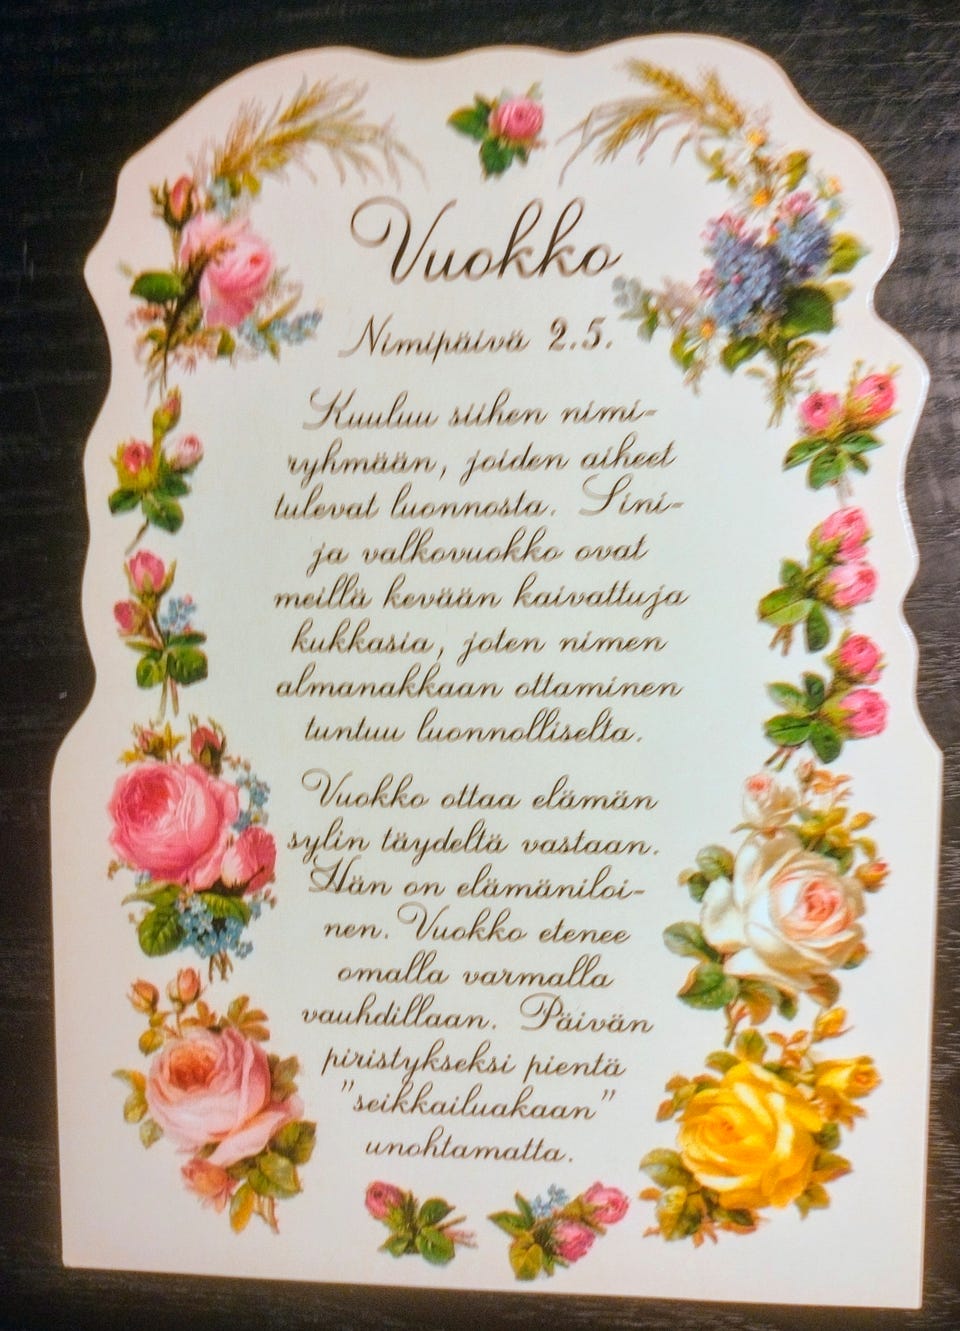 Vuokko
Nimipäivä 2.5.
Kuuluu siihen nimi-
ryhmään, joiden aiheet
tulevat luonnosta. Sini-
ja valkovuokko ovat
meillä kevään kaivattuja
kukkasia, joten nimen
almanakkaan ottaminen
tuntuu luonnolliselta.
Vuokko ottaa elämän
sylin täydeltä vastaan.
Hän on elämäniloi-
nen. Vuokko etenee
omalla varmalla
vauhdillaan. Päivän
piristykseksi pientä
"seikkailuakaan"
unohtamatta.